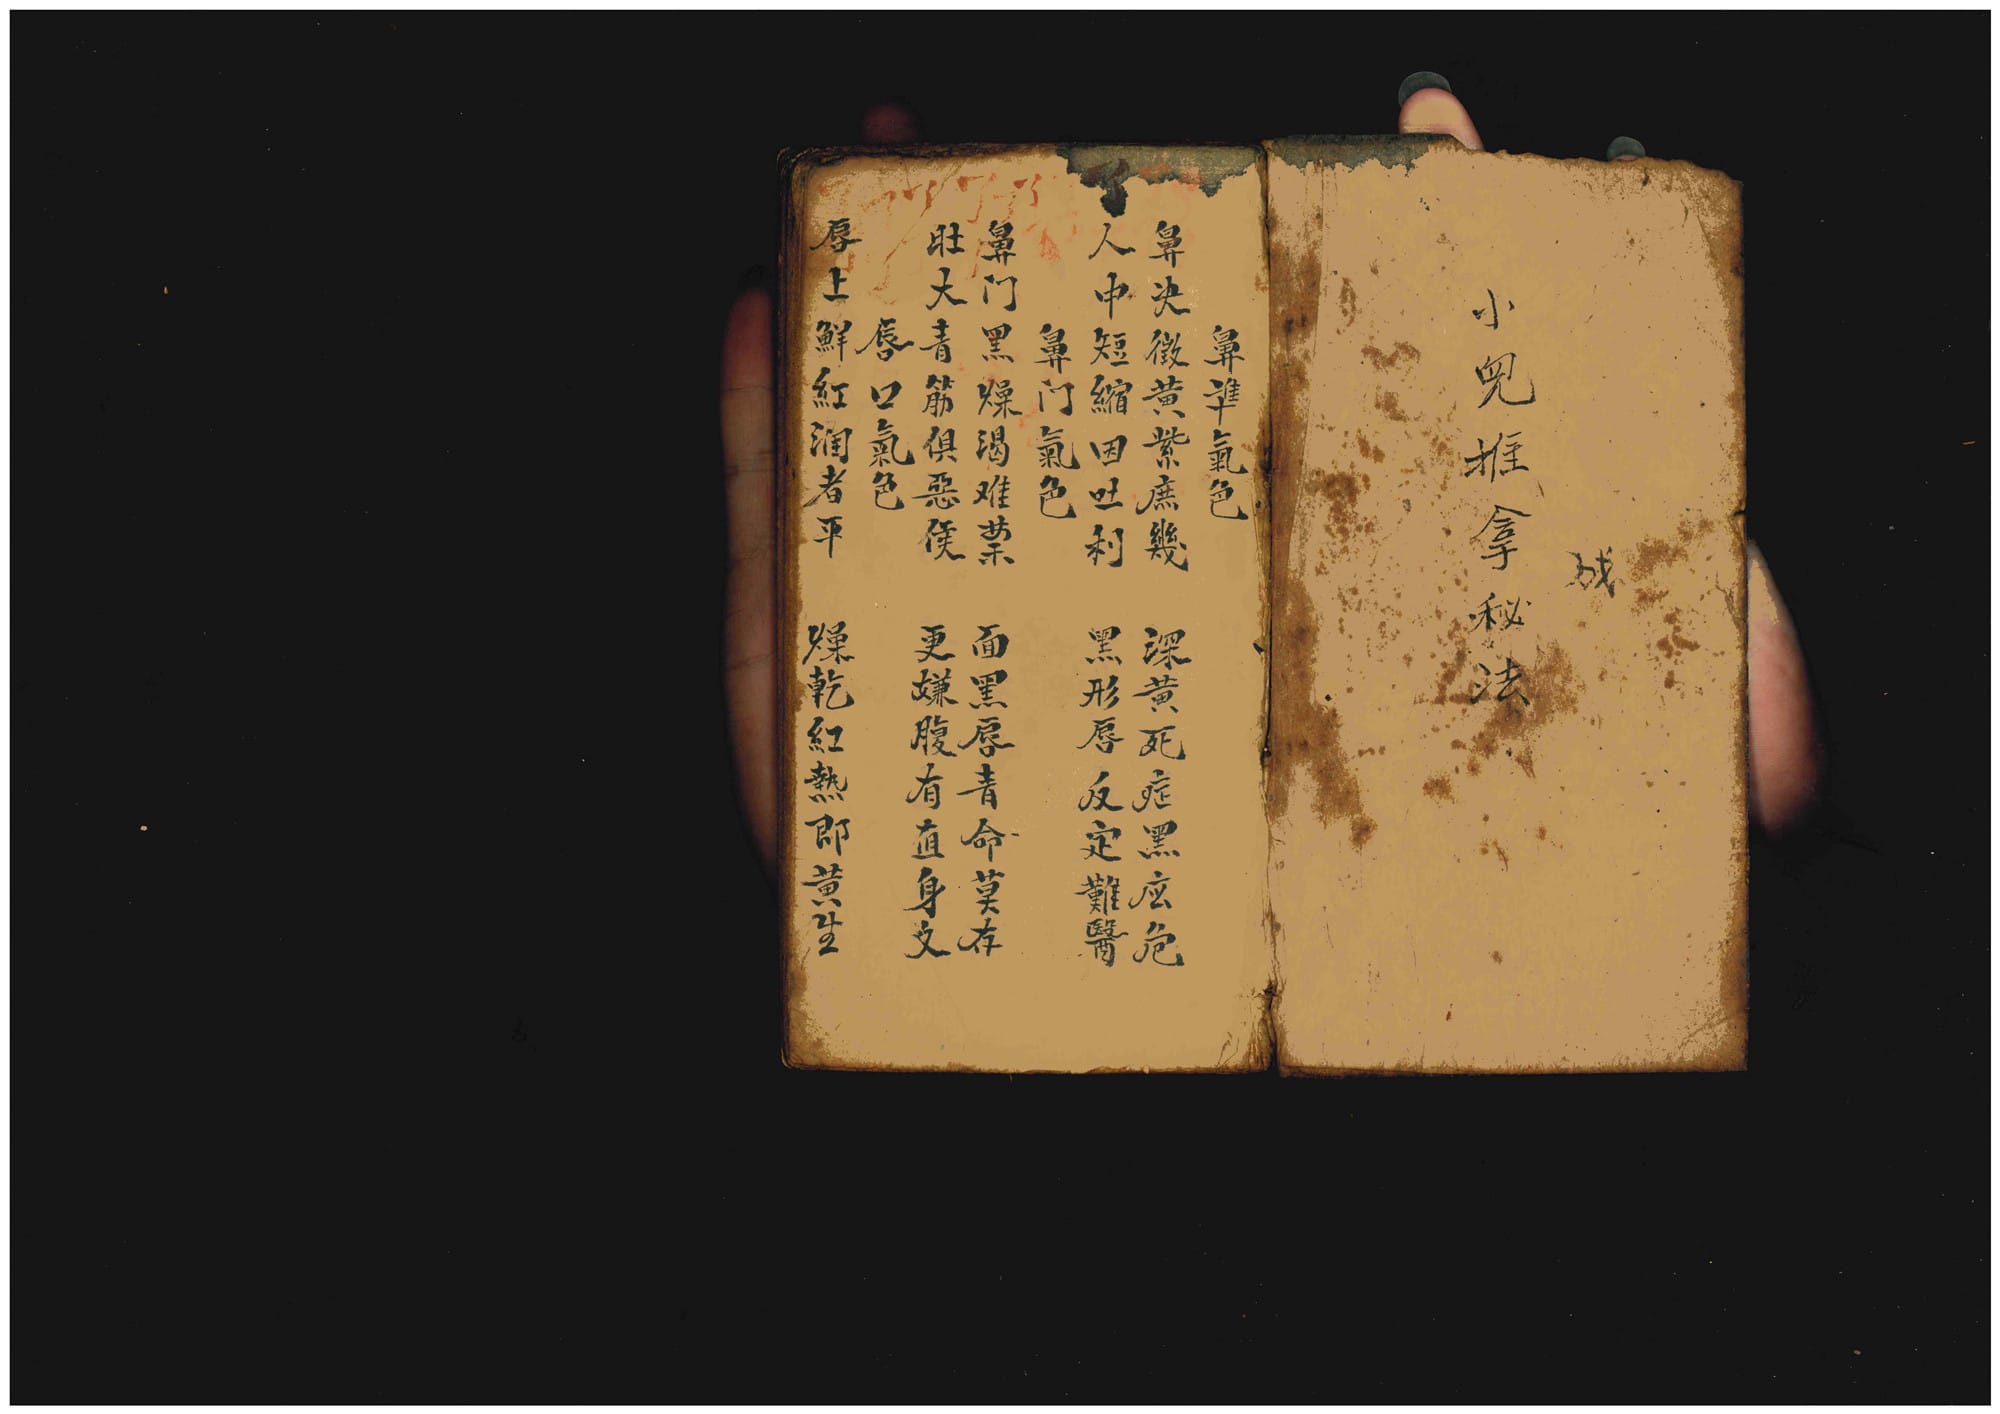 小兒推拿秘法
鼻準氣色
鼻决微黄紫庶幾　深黄死症黑庒危
人中短縮因吐利　黑形唇反定難醫
鼻门氣色
鼻门黑燥渴难禁　面黑唇青命莫存
肚大青筋俱惡候　更嫌腹有直身文
唇口氣色
唇上鮮紅润者平　燥乾紅熱即黄生